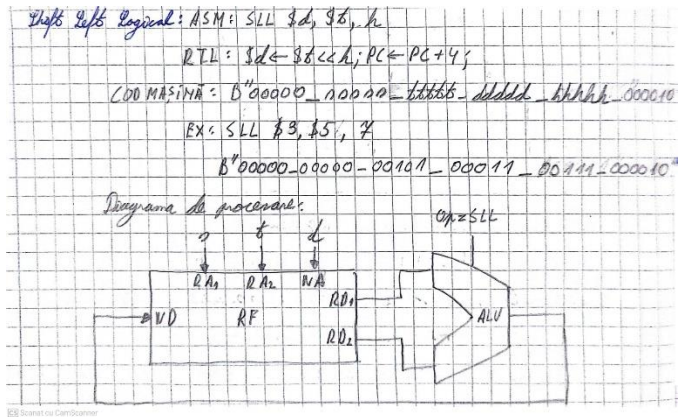 Shift Left Logical: ASM: SLL $d, $t, h
RTL: $d ← $t << h; PC ← PC + 4;
COD MAȘINĂ: B"00000_sssss_ttttt_ddddd_hhhhh_000010
EX: SLL $3, $5, 7
B"00000_00000_00101_00011_00111_000010"
Diagrama de procesare:
Op=SLL
s t d
RA1 RA2 WA
RD1
WD RF ALU
RD2
CS Scanat cu CamScanner